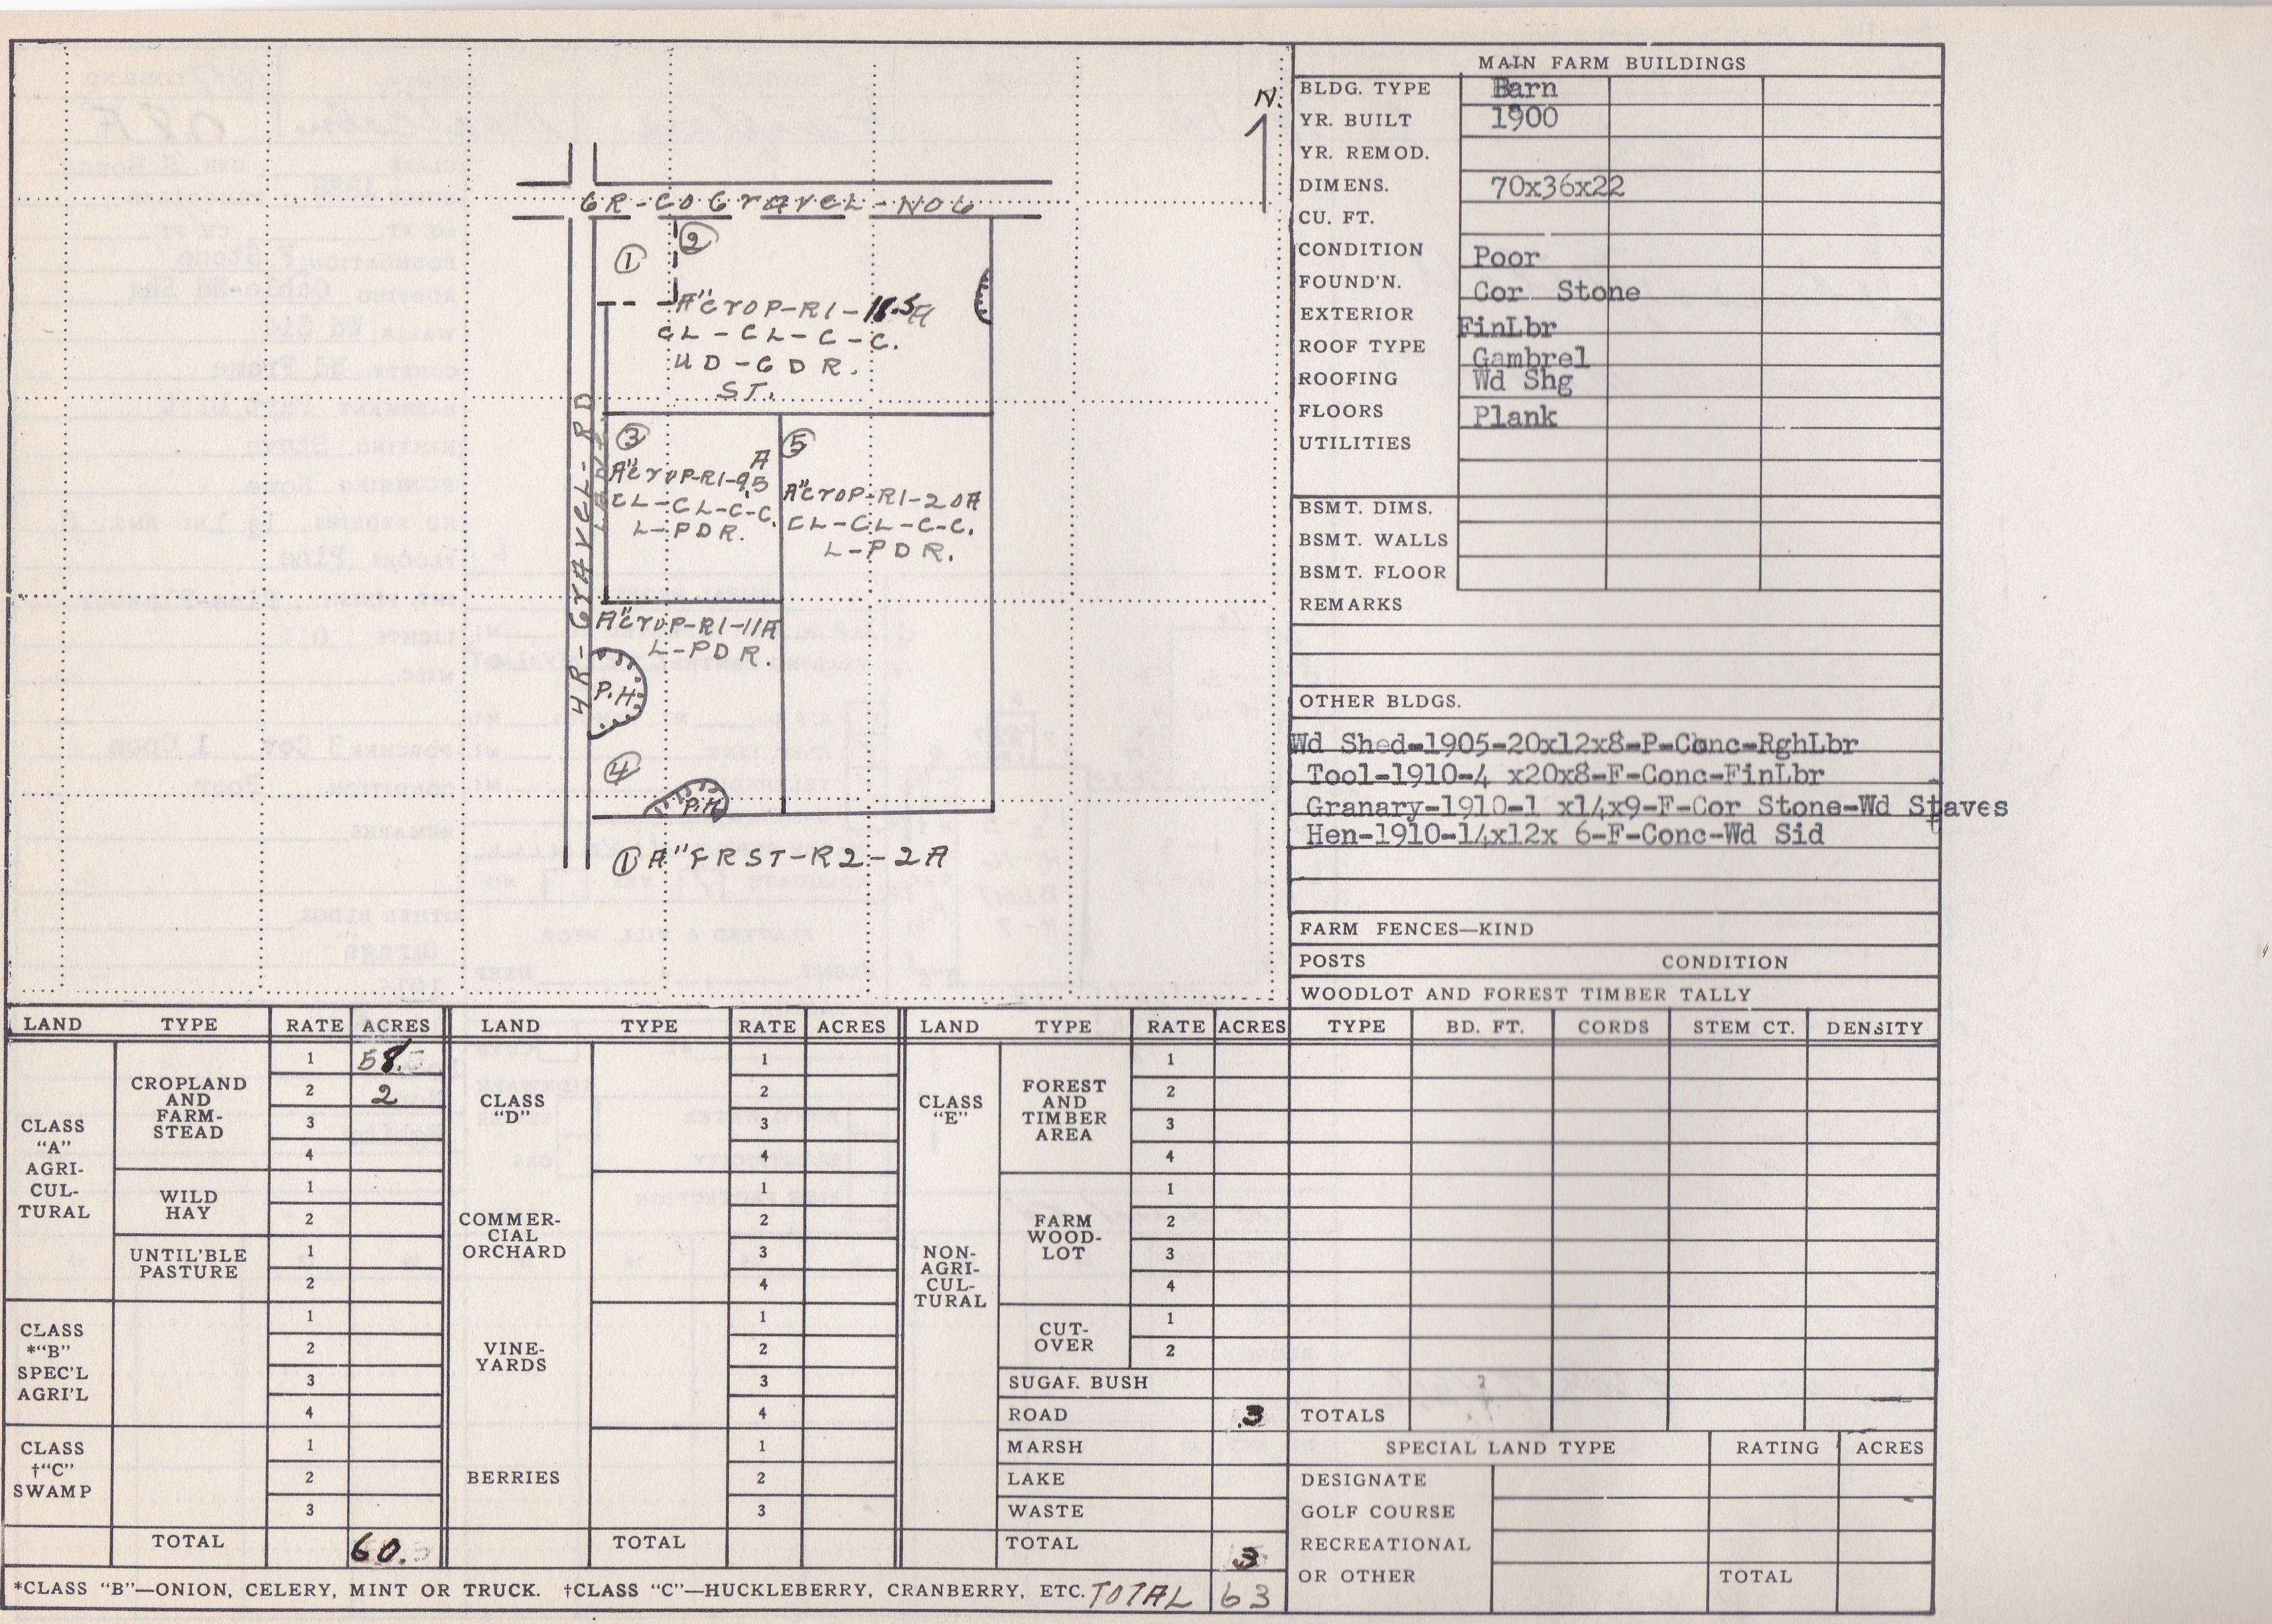 N.
6R-CO GravEL-NO6
①
②
A"CrOP-R1-18.5A
CL-CL-C-C.
UD-GDR.
ST.
4R-GrAVEL-RD
③
A
A"CrOP-R1-9.5
CL-CL-C-C.
L-PDR.
⑤
A"CrOP-R1-20A
CL-CL-C-C.
L-PDR.
A"CrOP-R1-11A
L-PDR.
P.H.
④
P.H.
① A"FRST-R2-2A
MAIN FARM BUILDINGS
BLDG. TYPE Barn
YR. BUILT 1900
YR. REMOD.
DIMENS. 70x36x22
CU. FT.
CONDITION Poor
FOUND'N. Cor Stone
EXTERIOR FinLbr
ROOF TYPE Gambrel
ROOFING Wd Shg
FLOORS Plank
UTILITIES
BSMT. DIMS.
BSMT. WALLS
BSMT. FLOOR
REMARKS
OTHER BLDGS.
Wd Shed-1905-20x12x8-P-Conc-RghLbr
Tool-1910-4 x20x8-F-Conc-FinLbr
Granary-1910-1 x14x9-F-Cor Stone-Wd Staves
Hen-1910-14x12x 6-F-Conc-Wd Sid
FARM FENCES—KIND
POSTS CONDITION
WOODLOT AND FOREST TIMBER TALLY
TYPE BD. FT. CORDS STEM CT. DENSITY
TOTALS
SPECIAL LAND TYPE RATING ACRES
DESIGNATE
GOLF COURSE
RECREATIONAL
OR OTHER TOTAL
LAND TYPE RATE ACRES
CLASS
"A"
AGRI-
CUL-
TURAL
CROPLAND
AND
FARM-
STEAD
1 58.
2 2
3
4
WILD
HAY
1
2
UNTIL'BLE
PASTURE
1
2
CLASS
*"B"
SPEC'L
AGRI'L
1
2
3
4
CLASS
†"C"
SWAMP
1
2
3
TOTAL 60.
LAND TYPE RATE ACRES
CLASS
"D"
COMMER-
CIAL
ORCHARD
1
2
3
4
1
2
3
4
VINE-
YARDS
1
2
3
4
BERRIES
1
2
3
TOTAL
LAND TYPE RATE ACRES
CLASS
"E"
NON-
AGRI-
CUL-
TURAL
FOREST
AND
TIMBER
AREA
1
2
3
4
FARM
WOOD-
LOT
1
2
3
4
CUT-
OVER
1
2
SUGAR BUSH
ROAD 3
MARSH
LAKE
WASTE
TOTAL 3
*CLASS "B"—ONION, CELERY, MINT OR TRUCK. †CLASS "C"—HUCKLEBERRY, CRANBERRY, ETC. TOTAL 63